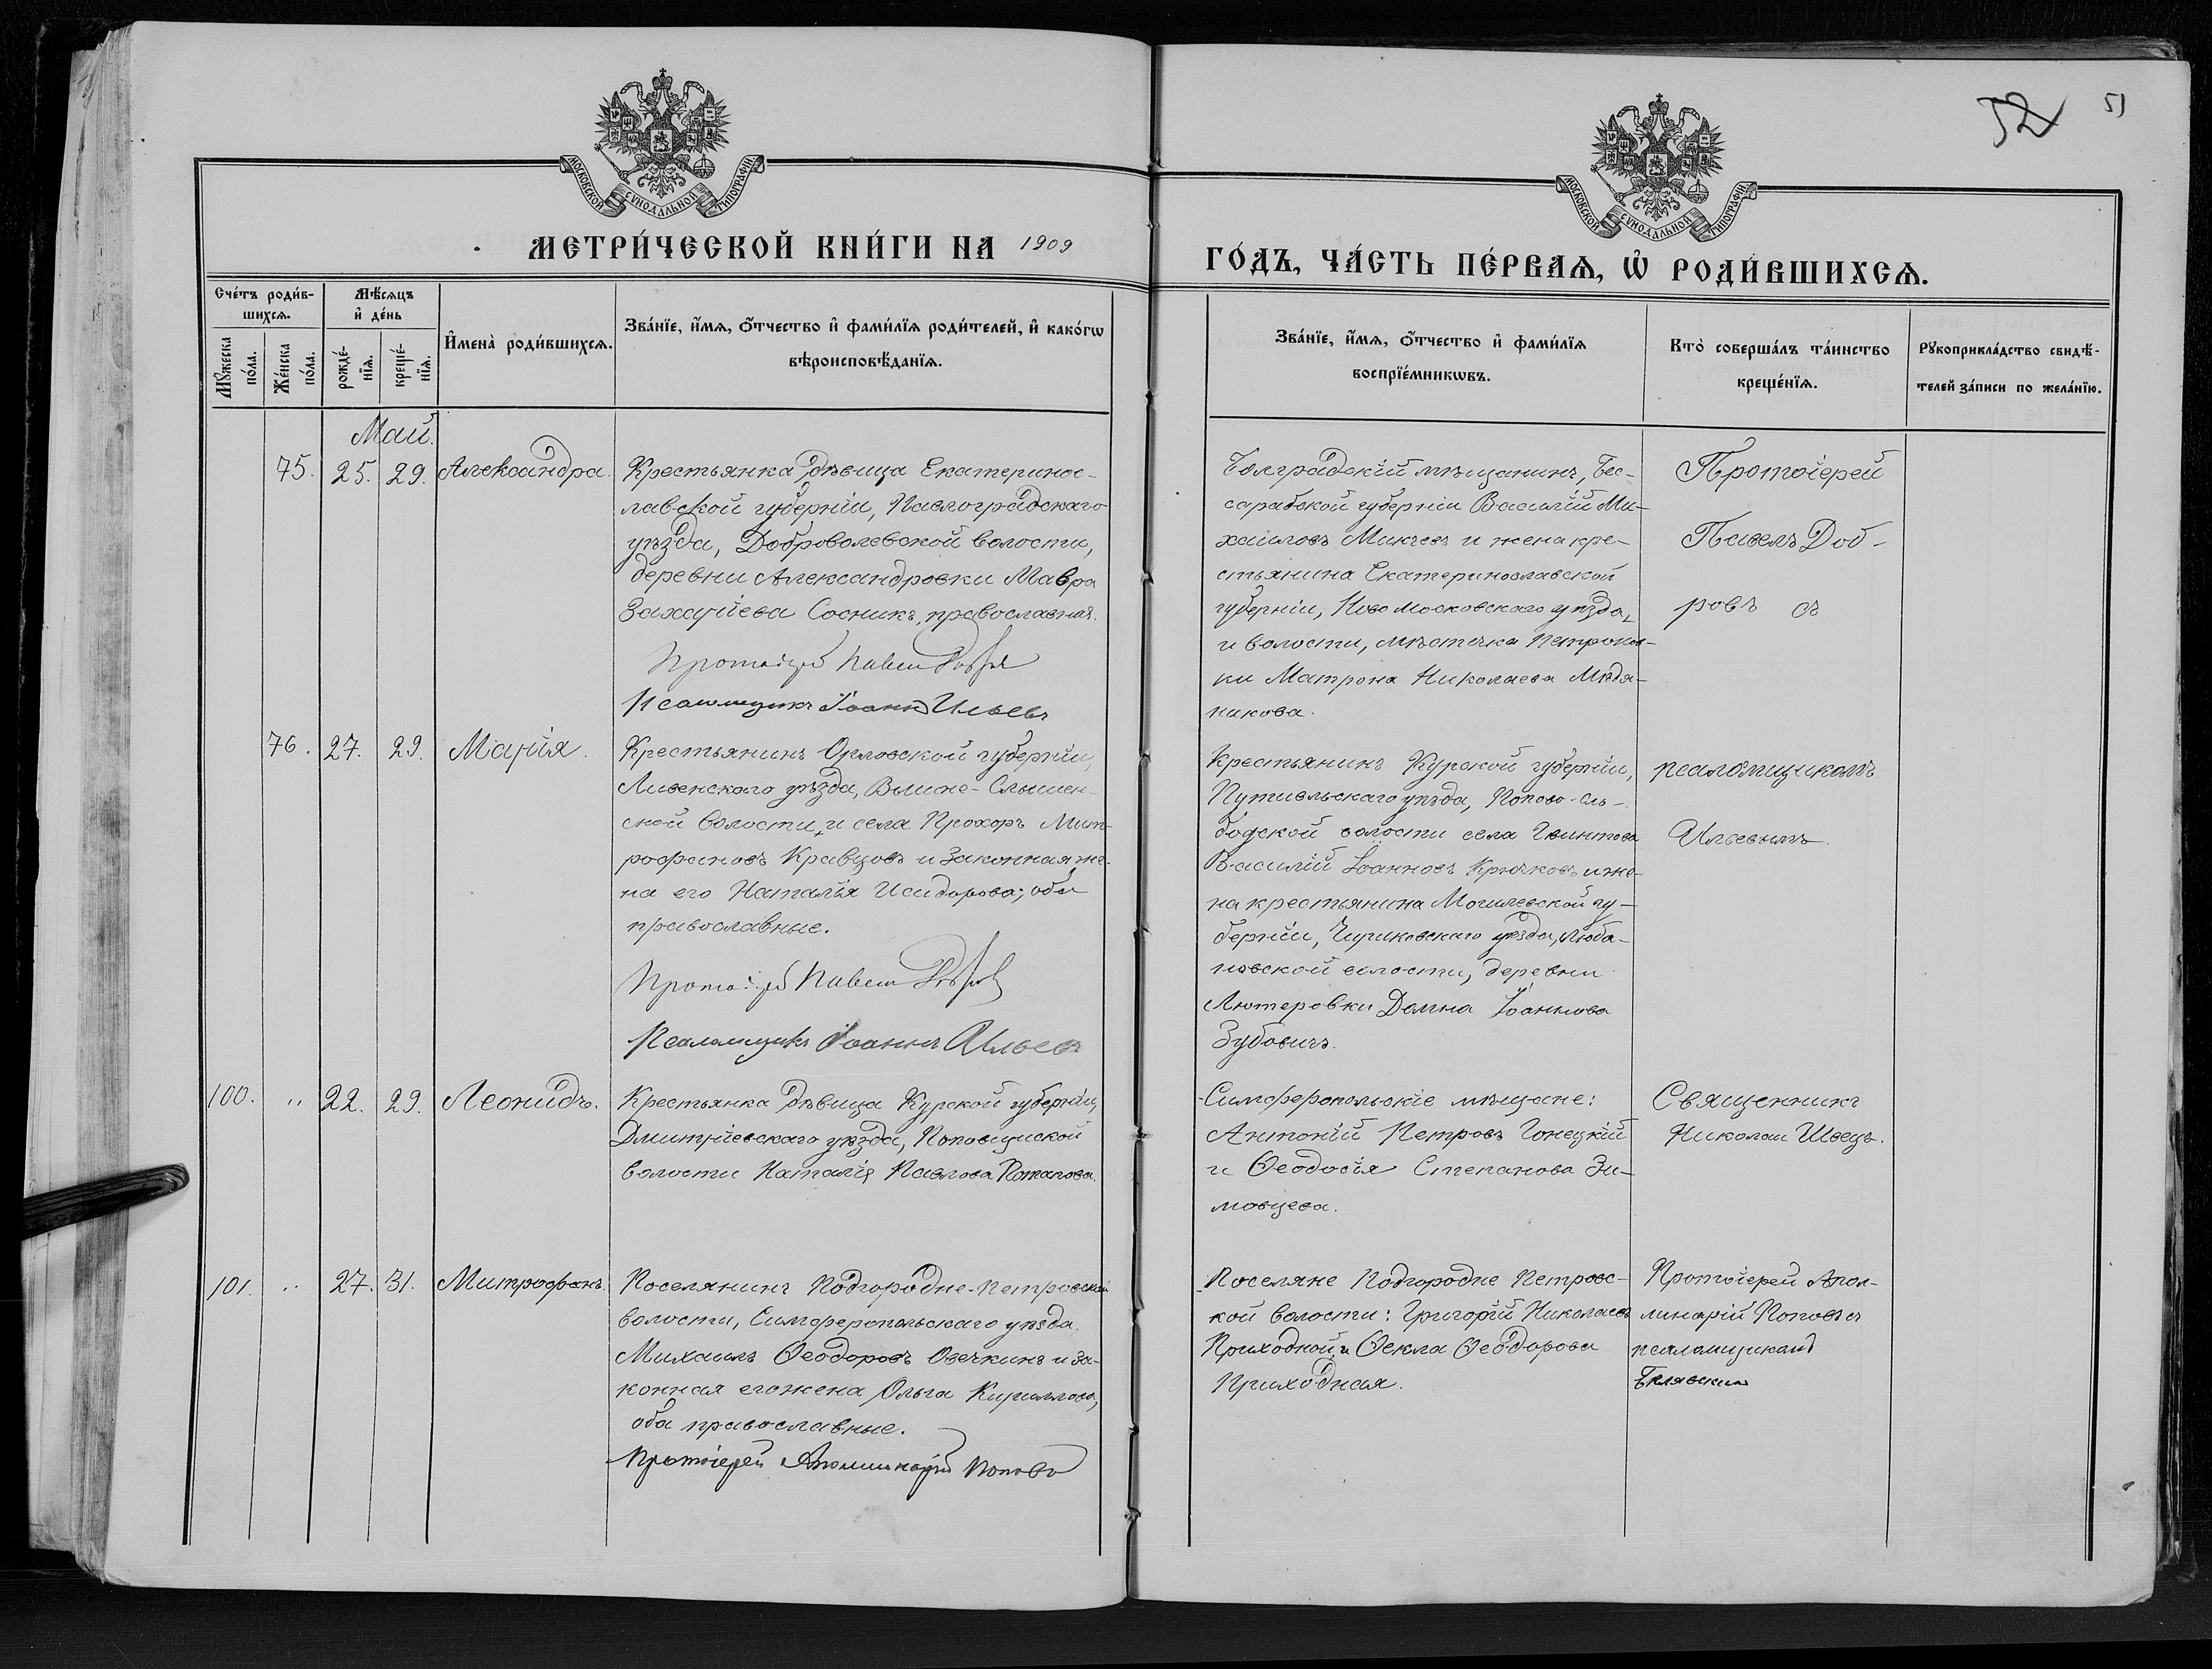 52 51
МОСКОВСКОЙ СѴНОДАЛЬНОЙ ТИПОГРАФІИ
МОСКОВСКОЙ СѴНОДАЛЬНОЙ ТИПОГРАФІИ
МЕТРИ́ЧЕСКОЙ КНИ́ГИ НА 1909
ГО́ДЪ, ЧА́СТЬ ПЕ́РВАѦ, Ѡ҆ РОДИ́ВШИХСѦ.
Сче́тъ роди́в-
шихсѧ.
Мꙋ́жеска по́ла.
Же́нска по́ла.
Мѣ́сѧцъ
и҆ де́нь
рожде́-
нїѧ.
креще́-
нїѧ.
И҆мена̀ роди́вшихсѧ.
Зва́нїе, и҆́мѧ, ѻ҆́тчество и҆ фами́лїѧ роди́телей, и҆ како́гѡ
вѣроисповѣ́данїѧ.
Зва́нїе, и҆́мѧ, ѻ҆́тчество и҆ фами́лїѧ
воспрїе́мникѡвъ.
Кто̀ соверша́лъ та́инство
креще́нїѧ.
Рꙋкоприкла́дство свидѣ́-
телей за́писи по жела́нїю.
Май.
75. 25. 29. Александра.
Крестьянка дѣвица Екатеринос-
лавской губерніи, Павлоградскаго
уѣзда, Доброволевской волости,
деревни Александровки Мавра
Захаріева Сосникъ, православная.
Протоіерей Павелъ Добровъ
Псаломщикъ Іоаннъ Ильевъ
Болградскій мѣщанинъ, Бес-
сарабской губерніи Василій Ми-
хаиловъ Микчевъ и жена кре-
стьянина Екатеринославской
губерніи, Новомосковскаго уѣзда,
и волости, мѣстечка Петроков-
ки Матрона Николаева Мѣдя-
никова.
Протоіерей
Павелъ Доб-
ровъ съ
76. 27. 29. Марія.
Крестьянинъ Орловской губерніи,
Ливенскаго уѣзда, Вышне-
ской волости, и села Прохоръ Мит-
рофановъ Кравцовъ и законная же-
на его Наталія Исидорова; оба
православные.
Протоіерей Павелъ Добровъ
Псаломщикъ Іоаннъ Ильевъ
Крестьянинъ Курской губерніи,
Путивльскаго уѣзда, Попово-Сло-
бодской волости села Гвинтова
Василій Іоанновъ Крючковъ и же-
на крестьянина Могилевской гу-
берніи, Чериковскаго уѣзда, Люба-
невской волости, деревни
Лютеровки Домна Іоаннова
Зубовичъ.
псаломщикомъ
Ильевымъ.
100. ,, 22. 29. Леонидъ.
Крестьянка дѣвица Курской губерніи,
Дмитріевскаго уѣзда, Поповицской
волости Наталія Павлова Потапова.
Симферопольскіе мѣщане:
Антоній Петровъ Гонецкій
и Ѳеодосія Степанова Зи-
мовцева.
Священникъ
Николай Швецъ.
101. ,, 27. 31. Митрофанъ.
Поселянинъ Подгородне-Петровской
волости, Симферопольскаго уѣзда
Михаилъ Ѳеодоровъ Овечкинъ и за-
конная его жена Ольга Кириллова,
оба православные.
Протоіерей Аполлинарій Поповъ
Поселяне Подгородне Петровс-
кой волости: Григорій Николаевъ
Приходной и Ѳекла Ѳеодорова
Приходная.
Протоіерей Апол-
линарій Поповъ съ
псаломщикомъ